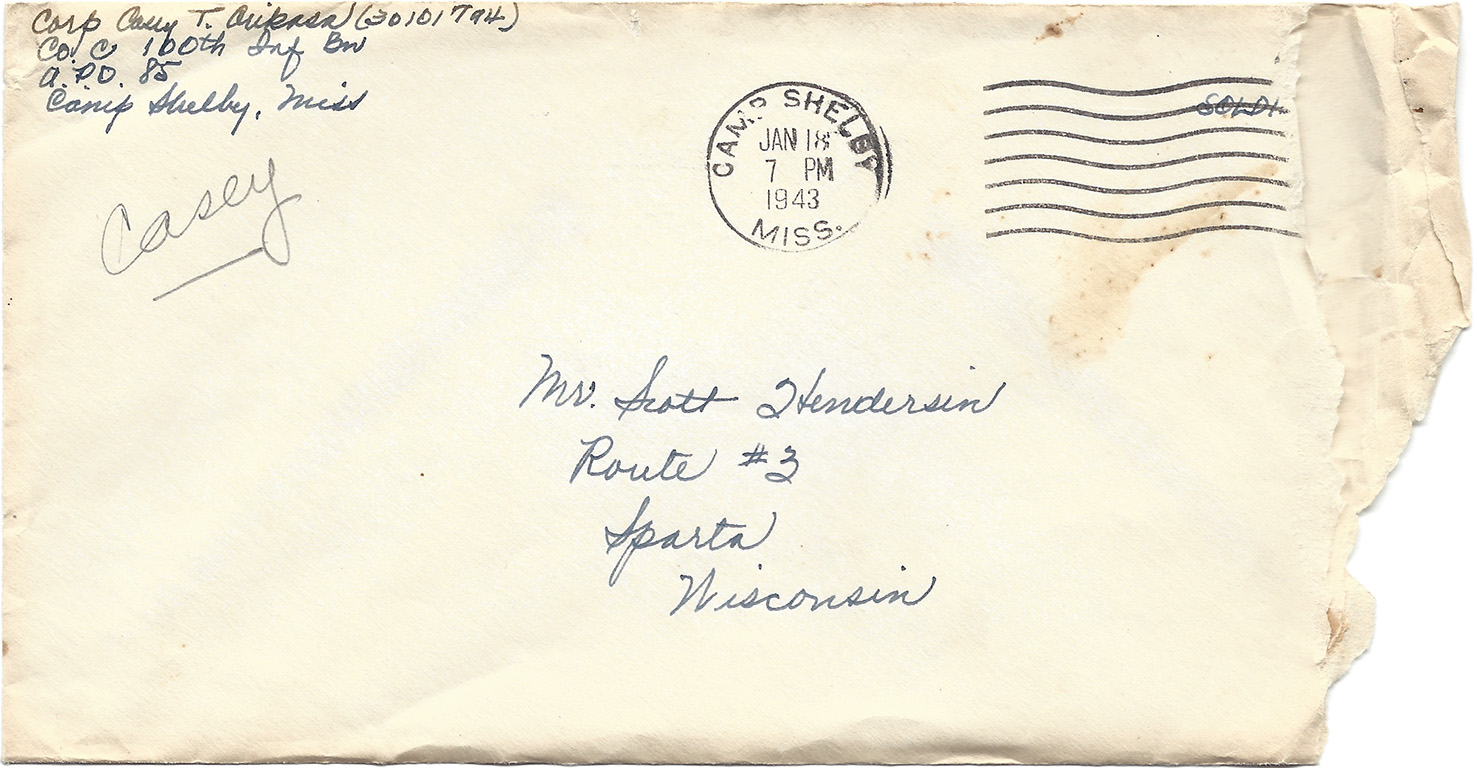 Corp Casey T. Arikasa (30101794)
Co. C 100th Inf Bn
A.P.O. 85
Camp Shelby, Miss
Casey
CAMP SHELBY
JAN 18
7 PM
1943
MISS.
SOLDI
Mr. Scott Hendersin
Route #3
Sparta
Wisconsin